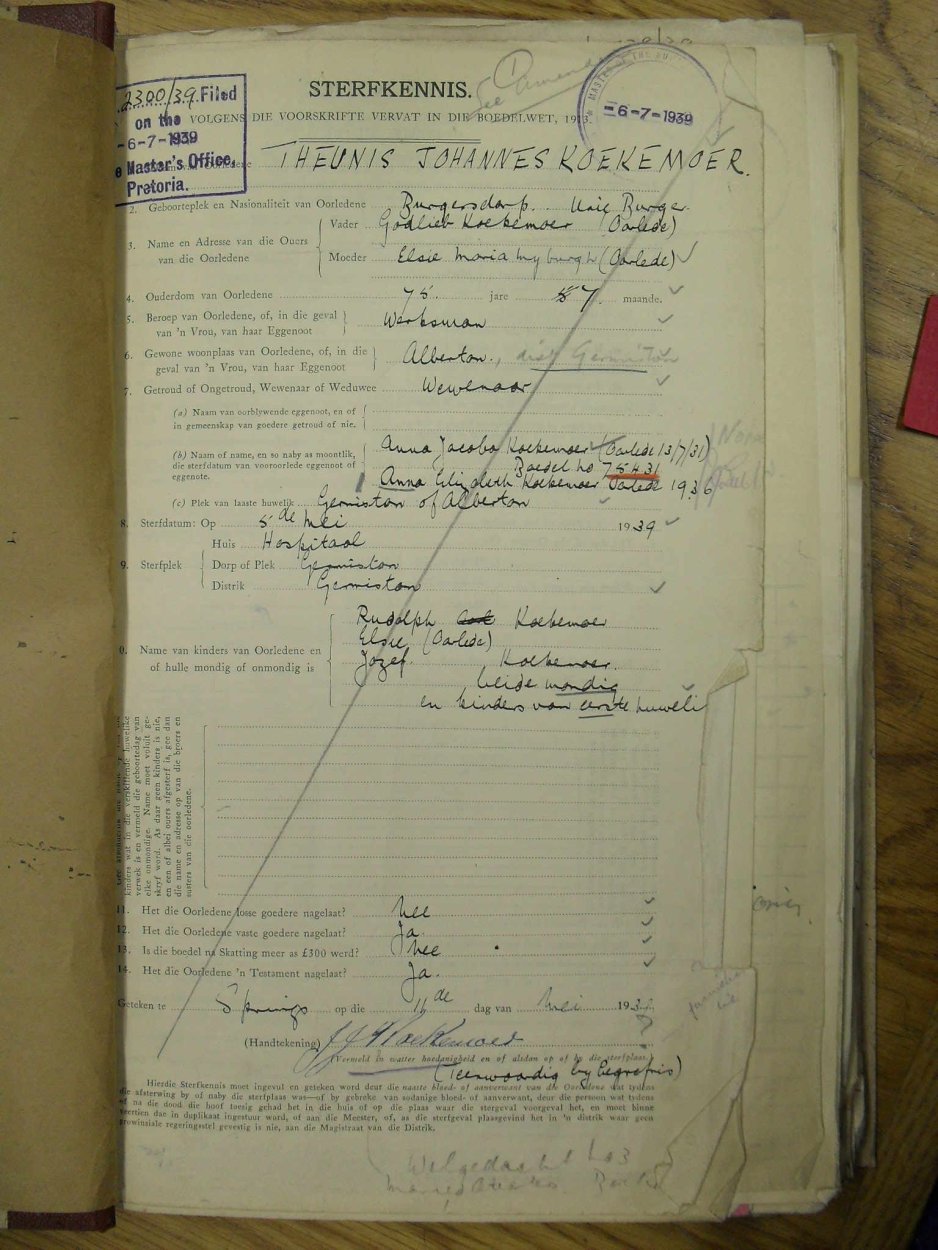 2300/39 Filed
on the
-6-7-1939
Master's Office,
Pretoria.
MASTER OF THE SU
-6-7-1939
See
STERFKENNIS.
VOLGENS DIE VOORSKRIFTE VERVAT IN DIE BOEDELWET, 1913.
THEUNIS JOHANNES KOEKEMOER.
2. Geboorteplek en Nasionaliteit van Oorledene Burgersdorp. Unie Burger
3. Name en Adresse van die Ouers van die Oorledene
Vader Godlieb Koekemoer (Oorlede)
Moeder Elsie Maria Myburgh (Oorlede)
4. Ouderdom van Oorledene 75 jare 7 maande.
5. Beroep van Oorledene, of, in die geval van 'n Vrou, van haar Eggenoot Werksman
6. Gewone woonplaas van Oorledene, of, in die geval van 'n Vrou, van haar Eggenoot Alberton, dist Germiston
7. Getroud of Ongetroud, Wewenaar of Weduwee Wewenaar
(a) Naam van oorblywende eggenoot, en of in gemeenskap van goedere getroud of nie.
(b) Naam of name, en so naby as moontlik, die sterfdatum van vooroorlede eggenoot of eggenote.
Anna Jacoba Koekemoer (Oorlede 13/7/31)
Boedel no 75431
Anna Elizabeth Koekemoer Oorlede 1936
(c) Plek van laaste huwelik Germiston of Alberton
8. Sterfdatum: Op 5de Mei 1939
9. Sterfplek
Huis Hospitaal
Dorp of Plek Germiston
Distrik Germiston
0. Name van kinders van Oorledene en of hulle mondig of onmondig is
Rudolph Koekemoer
Elsie (Oorlede)
Jozef Koekemoer.
beide mondig
en kinders van eerste huweli
kinders wat in die verskillende huwelike
verwek is en vermeld die geboortedag van
elke onmondige. Name moet voluit ge-
skryf word. As daar geen kinders is nie,
en een of albei ouers afgesterf is, gee dan
die name en adresse op van die broers en
susters van die oorledene.
11. Het die Oorledene losse goedere nagelaat? Nee
12. Het die Oorledene vaste goedere nagelaat? Ja
13. Is die boedel na Skatting meer as £300 werd? Nee
14. Het die Oorledene 'n Testament nagelaat? Ja.
Geteken te Springs op die 11de dag van Mei 1939
(Handtekening) J J Koekemoer
Vermeld in watter hoedanigheid en of aldan op of by die sterfplaas.
(Teenwoordig by begrafnis)
Hierdie Sterfkennis moet ingevul en geteken word deur die naaste bloed- of aanverwant van die Oorledene wat tydens
die afsterwing by of naby die sterfplaas was—of by gebreke van sodanige bloed- of aanverwant, deur die persoon wat tydens
of na die dood die hoof toesig gehad het in die huis of op die plaas waar die stergeval voorgeval het, en moet binne
veertien dae in duplikaat ingestuur word, of aan die Meester, of, as die sterfgeval plaasgevind het in 'n distrik waar geen
provinsiale regeringsstel gevestig is nie, aan die Magistraat van die Distrik.